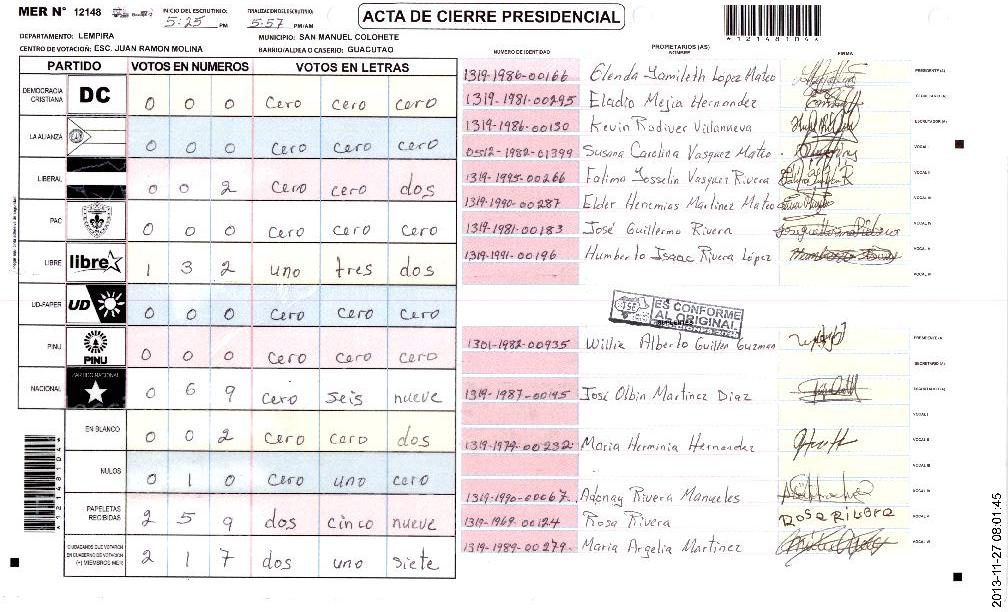 MER N° 12148
INICIO DEL ESCRUTINIO: 5:25 PM
FINALIZACION DEL ESCRUTINIO: 5:57 PM/AM
ACTA DE CIERRE PRESIDENCIAL
*12148104*
DEPARTAMENTO: LEMPIRA
MUNICIPIO: SAN MANUEL COLOHETE
CENTRO DE VOTACIÓN: ESC. JUAN RAMON MOLINA
BARRIO/ALDEA O CASERIO: GUACUTAO
PARTIDO VOTOS EN NUMEROS VOTOS EN LETRAS
DEMOCRACIA CRISTIANA DC 0 0 0 cero cero cero
LA ALIANZA 0 0 0 cero cero cero
LIBERAL 0 0 2 cero cero dos
PAC 0 0 0 cero cero cero
LIBRE libre 1 3 2 uno tres dos
UD-FAPER UD 0 0 0 cero cero cero
PINU PINU 0 0 0 cero cero cero
NACIONAL PARTIDO NACIONAL 0 6 9 cero seis nueve
EN BLANCO 0 0 2 cero cero dos
NULOS 0 1 0 cero uno cero
PAPELETAS RECIBIDAS 2 5 9 dos cinco nueve
CIUDADANOS QUE VOTARON EN CUADERNO DE VOTACION (+) MIEMBROS MER 2 1 7 dos uno siete
*12148104*
NUMERO DE IDENTIDAD PROPIETARIOS (AS) NOMBRE FIRMA
1319-1986-00166 Elenda Yamileth Lopez Mateo PRESIDENTE (A)
1319-1981-00295 Eladio Mejia Hernandez
1319-1986-00130 Kevin Rodiver Villanueva ESCRUTADOR (A)
0512-1982-01399 Susana Carolina Vasquez Mateo VOCAL I
1319-1995-00266 Fatima Yosselin Vasquez Rivera VOCAL II
1319-1990-00287 Elder Heremias Martinez Mateo VOCAL III
1319-1981-00183 José Guillermo Rivera VOCAL IV
1319-1991-00196 Humberto Isaac Rivera López VOCAL V
VOCAL VI
ES CONFORME AL ORIGINAL
1301-1982-00935 Willis Alberto Guillen Guzman PRESIDENTE (A)
SECRETARIO (A)
1319-1987-00145 José Olbin Martinez Diaz ESCRUTADOR (A)
VOCAL I
1319-1979-00232 Maria Herminia Hernandez VOCAL II
VOCAL III
1319-1990-00067 Adonay Rivera Manueles VOCAL IV
1319-1969-00124 Rosa Rivera Rosa Rivera VOCAL V
1319-1989-00279 Maria Argelia Martinez VOCAL VI
2013-11-27 08:01:45